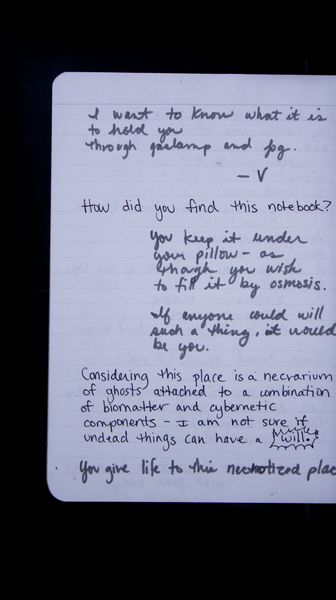 I want to know what it is
to hold you
through gaslamp and fog.
— V
How did you find this notebook?
You keep it under
your pillow — as
though you wish
to fill it by osmosis.
If anyone could will
such a thing, it would
be you.
Considering this place is a necrarium
of ghosts attached to a combination
of biomatter and cybernetic
components - I am not sure if
undead things can have a will.
You give life to this necrotized plac